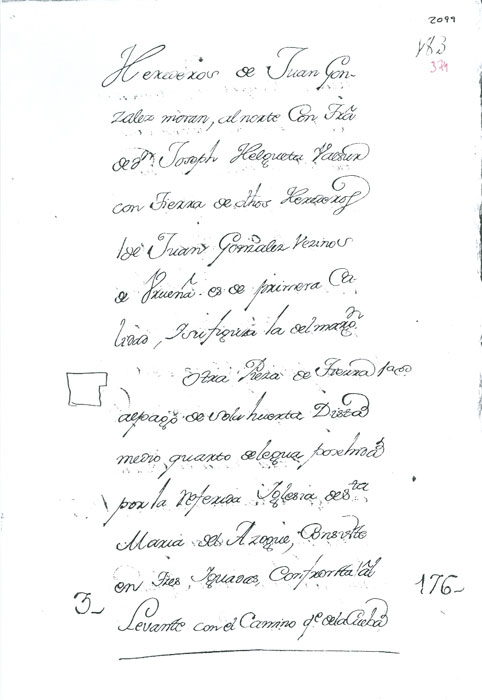 2099
183
374
Herederos de Juan Gon-
zalez moran, al norte Con trã
de Dn Joseph Helgueta Y al sur
con tierra de dhos Herederos
de Juan Gonzalez Vezinos
de Prueña. es de primera Ca-
lidad, Y su figura la del margn
Otra Pieza de tierra
al pago de Distta
medio quarto de legua
por la referida Iglesia de Sta
Maria del Azogue, Consiste
en tres Yguadas, Confronta al
3_
176_
Levante con el Camino qe de la